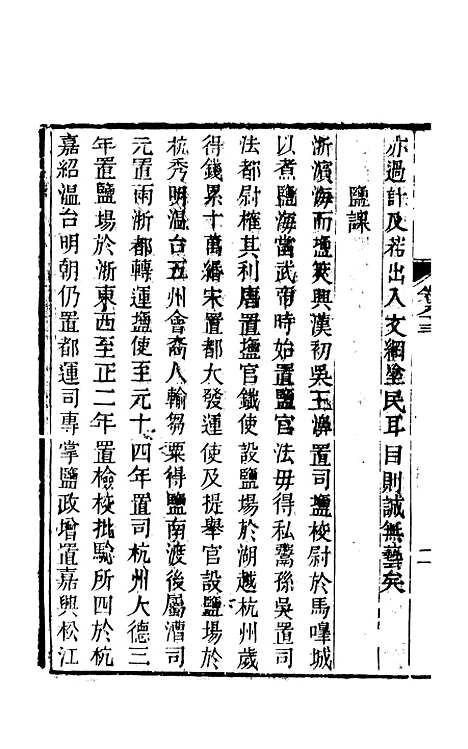 亦過計及若出入文網塗民耳目則誠無藝矣
鹽課
浙濵海而塩筴興漢初吳王濞置司塩校尉於馬嘷城
以煮鹽海當武帝時始置鹽官法毋得私鬻孫吳置司
法都尉榷其利唐置塩官鐵使設鹽場於湖越杭州歲
得錢累十萬緡宋置都大發運使及提舉官設鹽場於
杭秀明温台五州會裔人輸芻粟得鹽南渡後屬漕司
元置兩浙都轉運塩使至元十四年置司杭州大德三
年置鹽場於浙東西至正二年置檢校批驗所四於杭
嘉紹温台明朝仍置都運司專掌鹽政增置嘉興松江
二